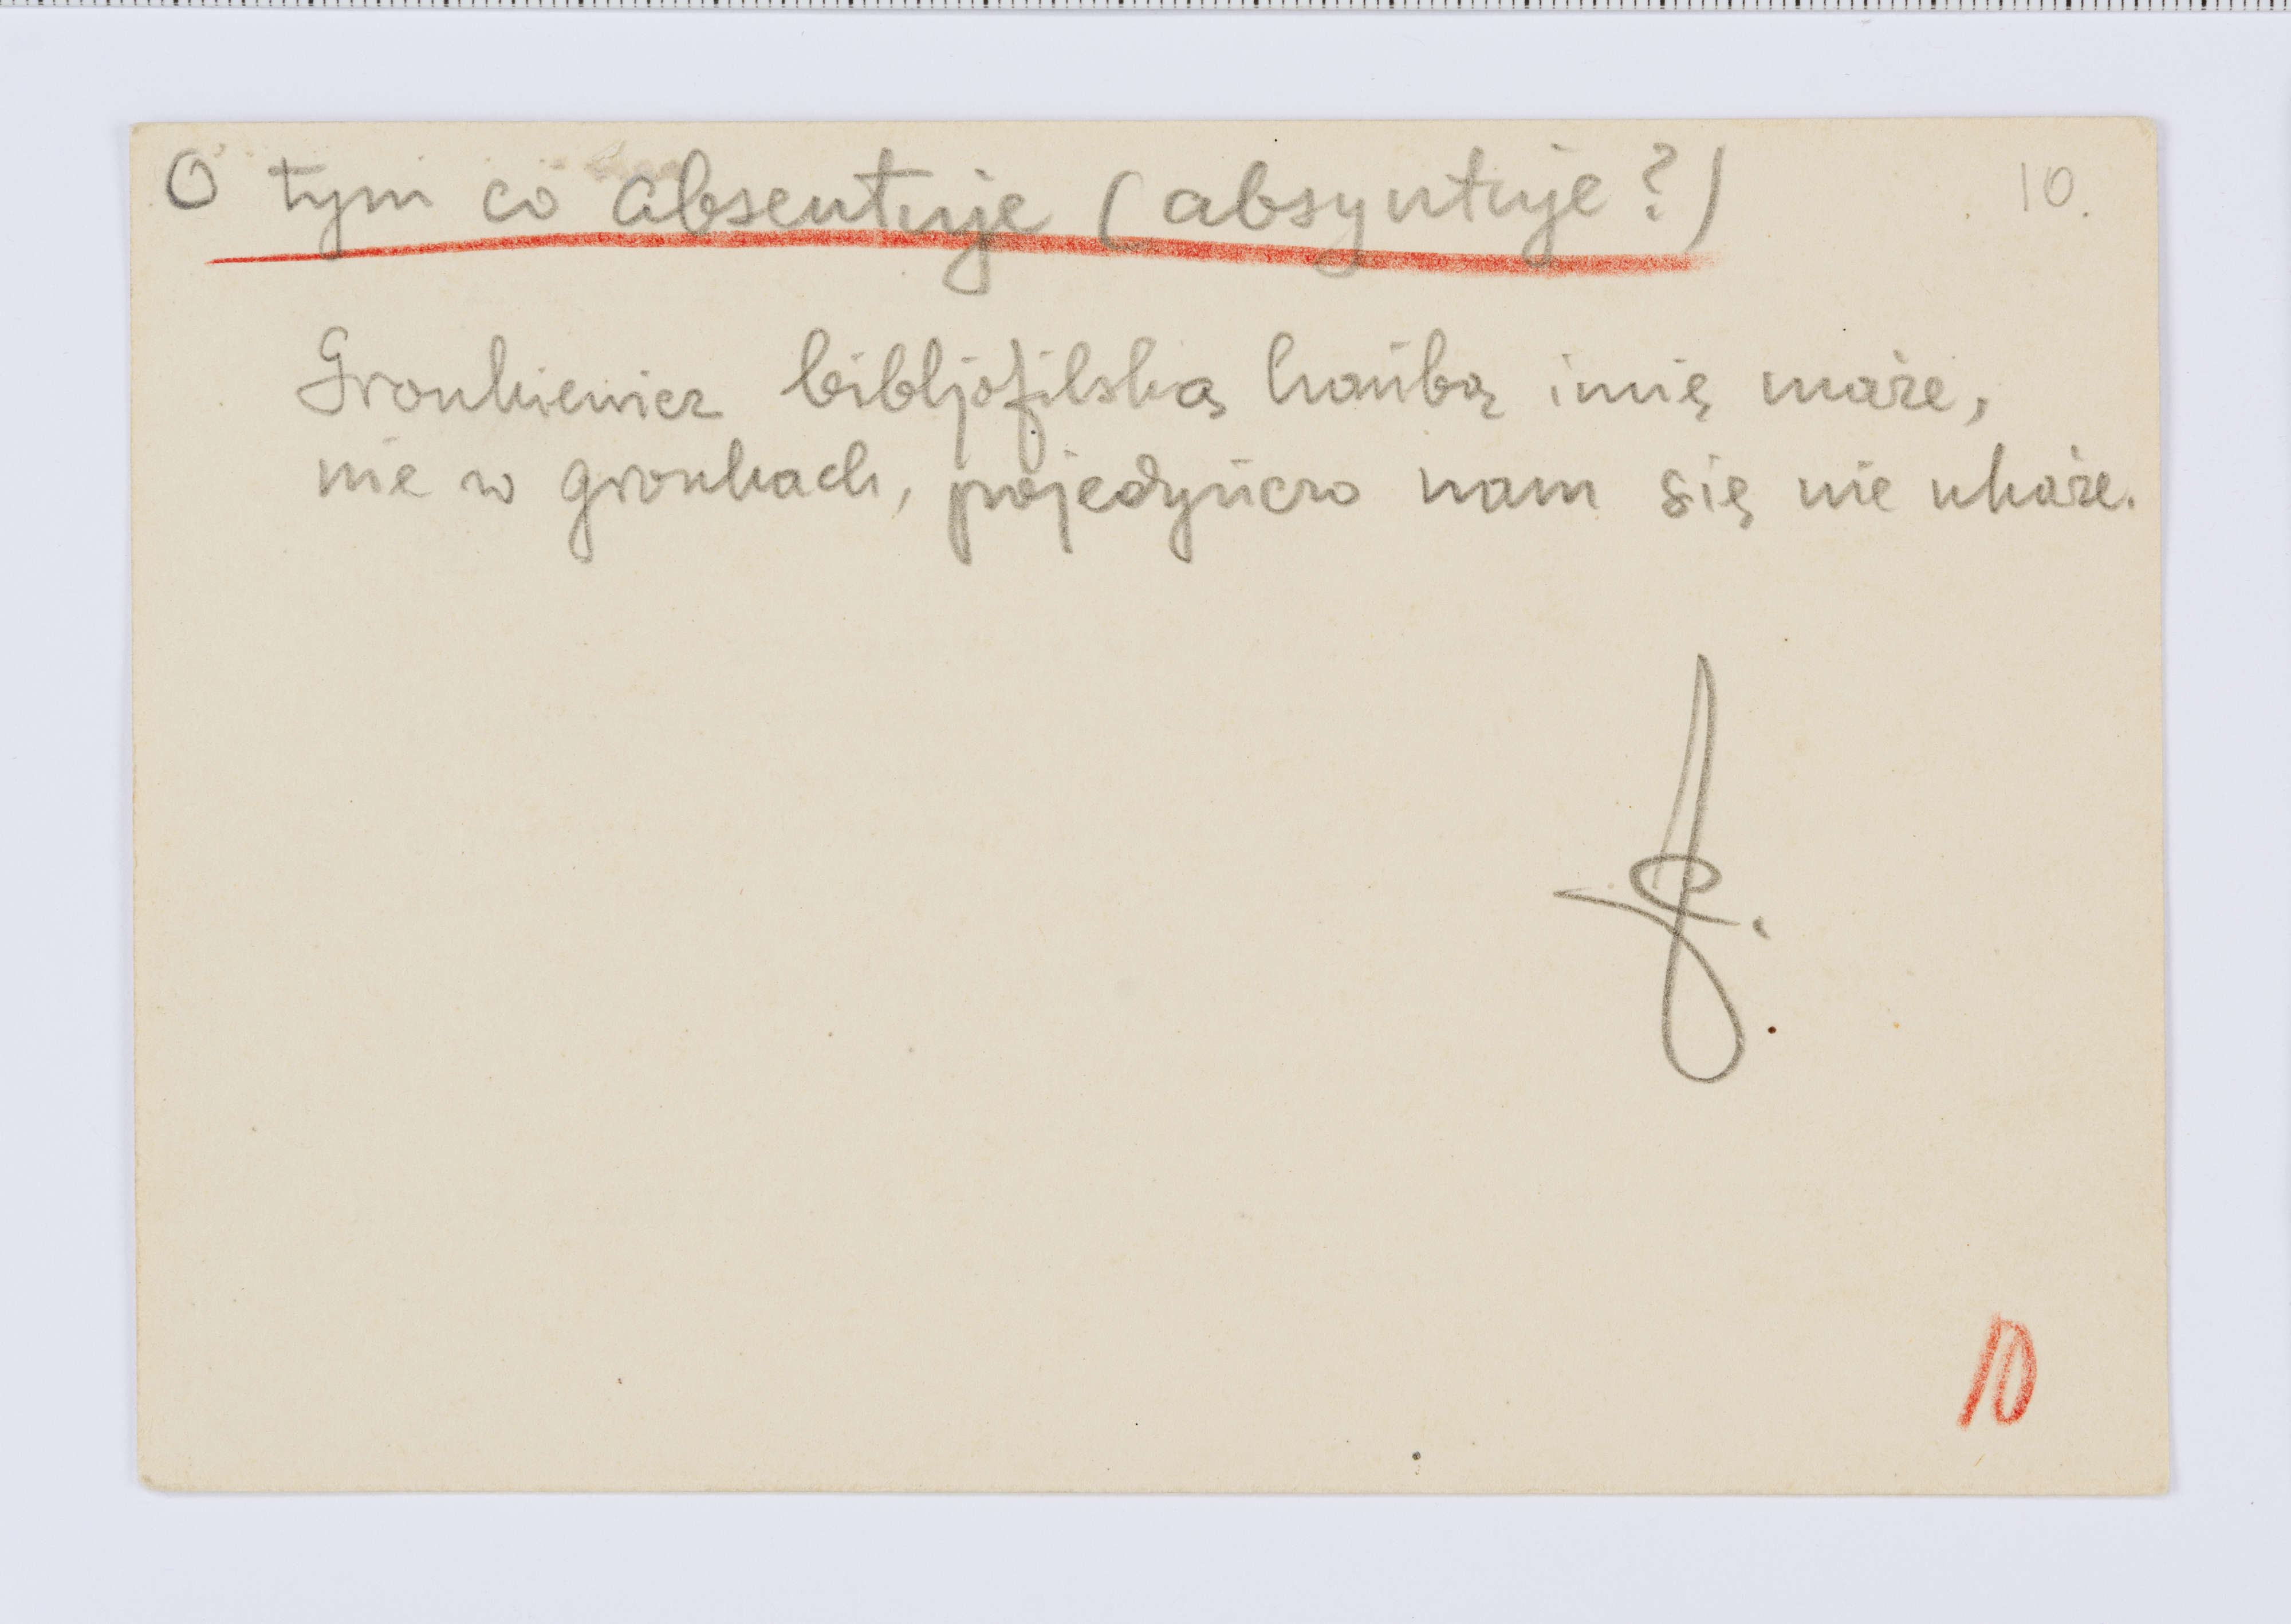 O tym co absentuje (absyntuje?)
10.
Gronkiewicz bibljofilską hańbą imię maże,
nie w gronkach, pojedyńczo nam się nie ukaże.
10